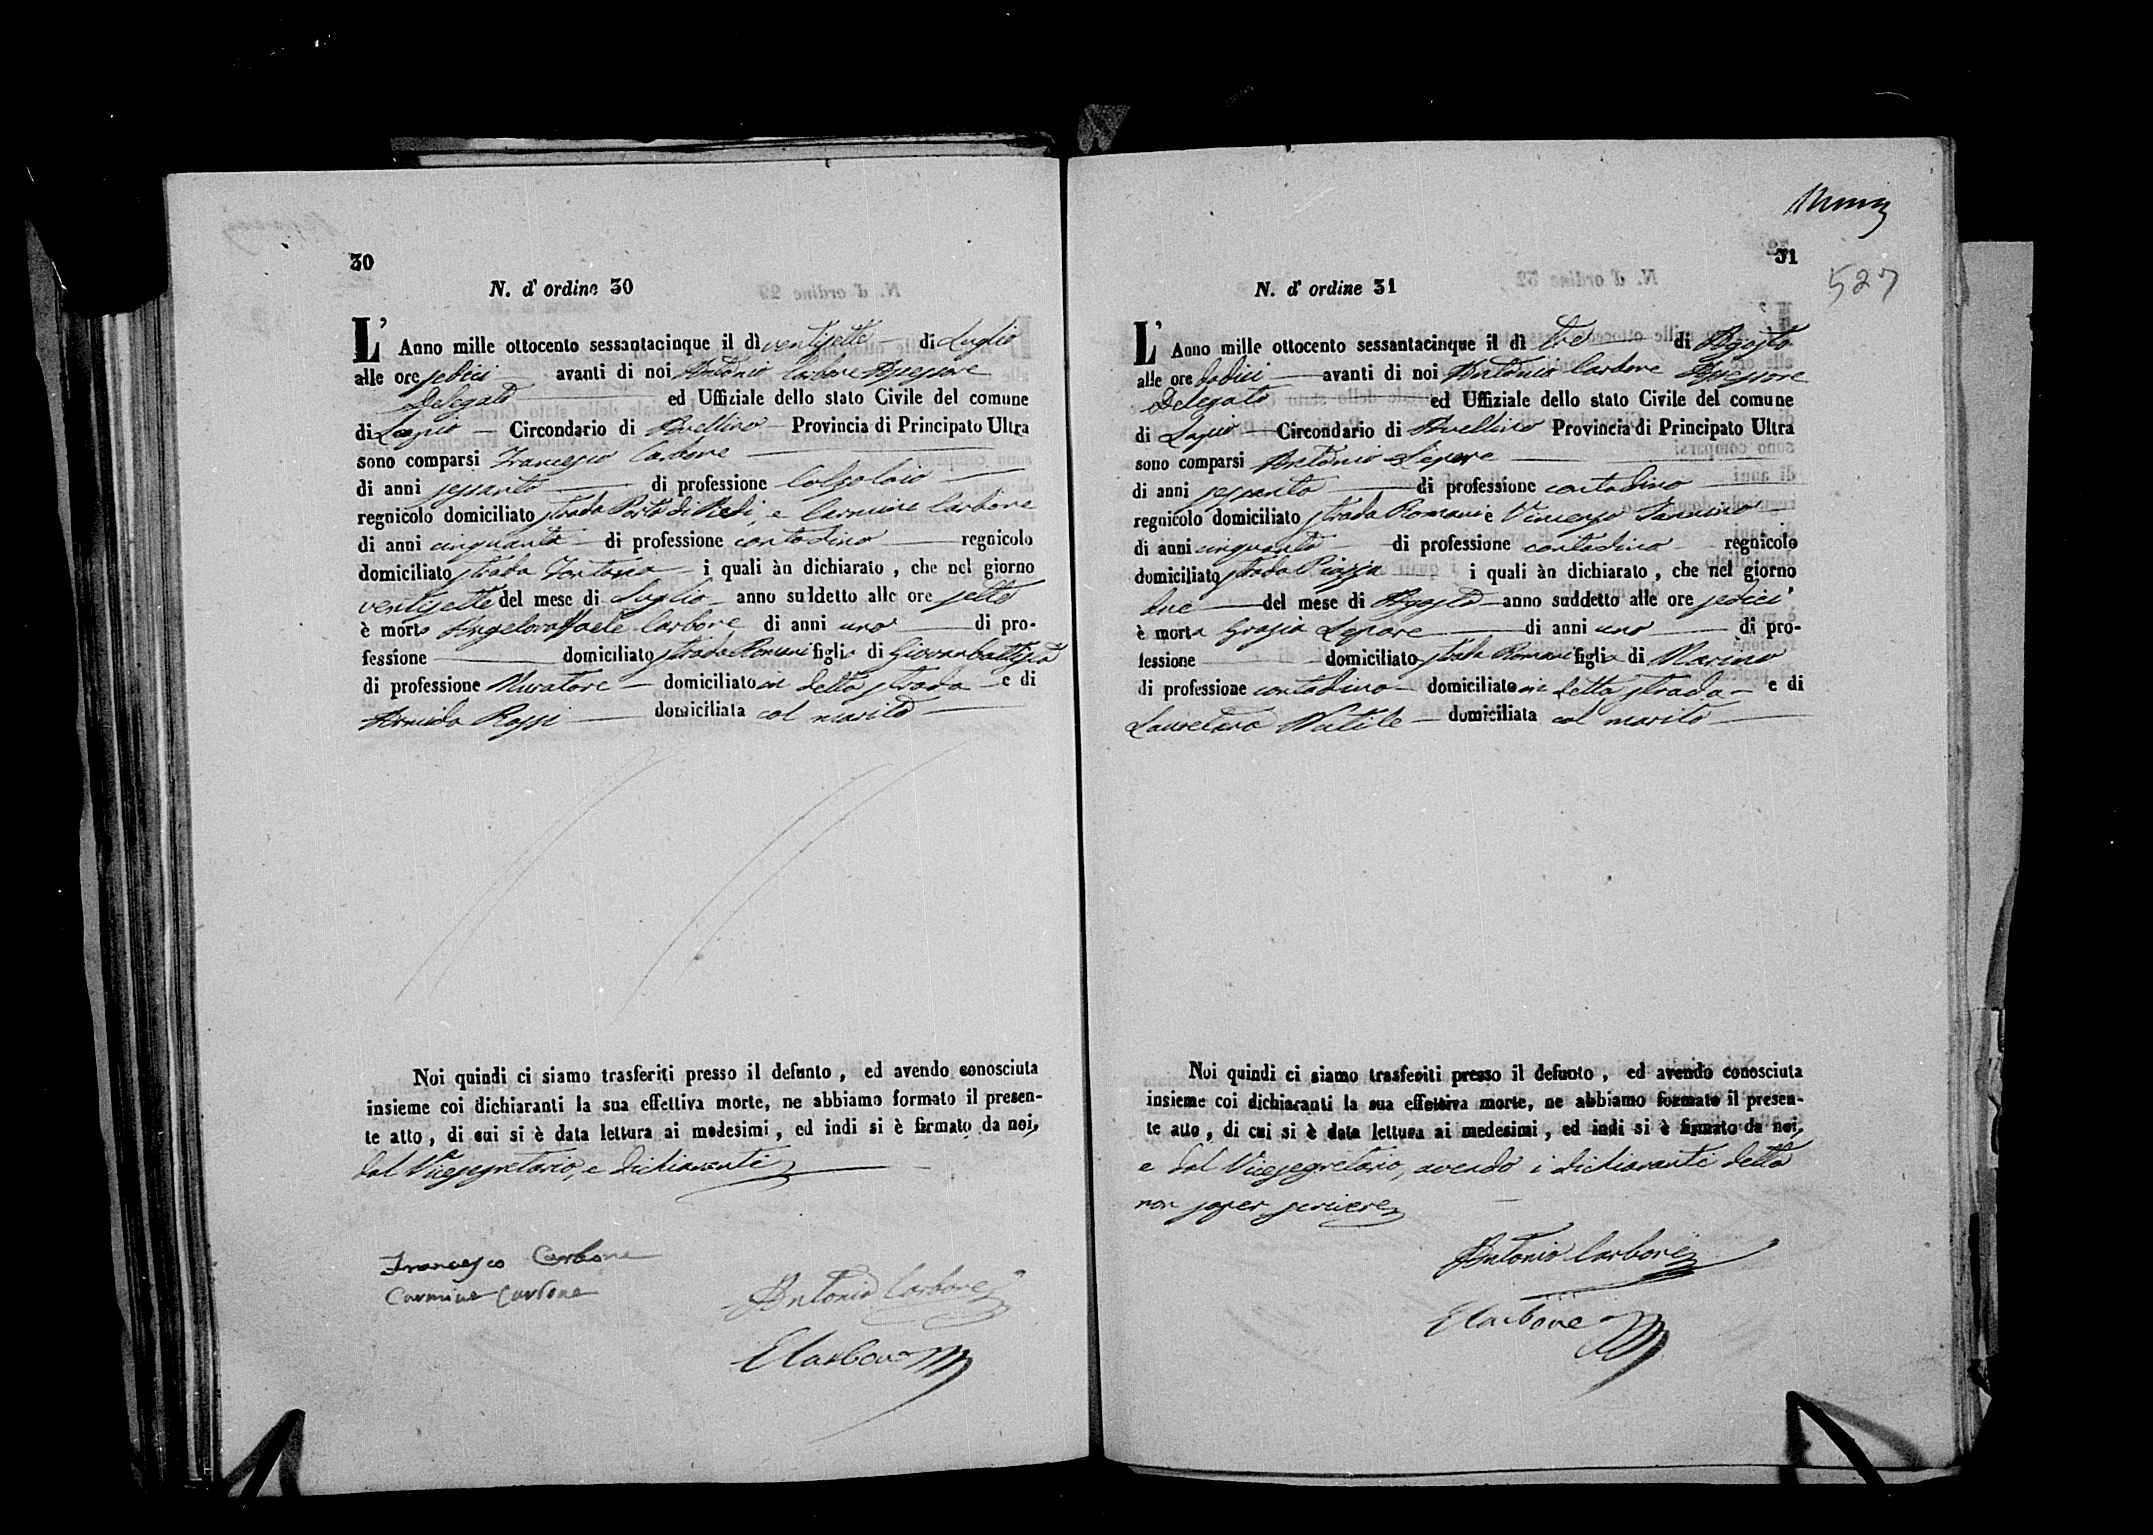 30
N. d' ordine 30
L' Anno mille ottocento sessantacinque il dì ventisette di Luglio
alle ore sedici avanti di noi Antonio Carbone Assessore
Delegato ed Uffiziale dello stato Civile del comune
di Lapio Circondario di Avellino Provincia di Principato Ultra
sono comparsi Francesco Carbone
di anni sessanta di professione Calzolaio
regnicolo domiciliato strada Porta di Redi, e Carmine Carbone
di anni cinquanta di professione contadino regnicolo
domiciliato strada Fontana i quali àn dichiarato , che nel giorno
ventisette del mese di Luglio anno suddetto alle ore sette
è morto Angeloraffaele Carbone di anni uno di pro-
fessione domiciliato strada Romani figlio di Giovanbattista
di professione Muratore domiciliato in detta strada e di
Armida Rossi domiciliata col marito
Noi quindi ci siamo trasferiti presso il defunto , ed avendo conosciuta
insieme coi dichiaranti la sua effettiva morte, ne abbiamo formato il presen-
te atto , di cui si è data lettura ai medesimi , ed indi si è firmato da noi,
dal Vicesegretario, e dichiaranti
Francesco Carbone
Carmine Carbone
Antonio Carbone
E Carbone
31
527
N. d' ordine 31
L' Anno mille ottocento sessantacinque il dì tre di Agosto
alle ore dodici avanti di noi Antonio Carbone Assessore
Delegato ed Uffiziale dello stato Civile del comune
di Lapio Circondario di Avellino Provincia di Principato Ultra
sono comparsi Antonio Lepore
di anni sessanta di professione contadino
regnicolo domiciliato strada Romani e Vincenzo Iannino
di anni cinquanta di professione contadino regnicolo
domiciliato strada Piazza i quali àn dichiarato , che nel giorno
due del mese di Agosto anno suddetto alle ore sedici
è morta Grazia Lepore di anni uno di pro-
fessione domiciliato strada Romani figlia di Marino
di professione contadino domiciliato in detta strada e di
Lauretana Natile domiciliata col marito
Noi quindi ci siamo trasferiti presso il defunto , ed avendo conosciuta
insieme coi dichiaranti la sua effettiva morte, ne abbiamo formato il presen-
te atto , di cui si è data lettura ai medesimi , ed indi si è firmato da noi,
e dal Vicesegretario, avendo i dichiaranti detto
non saper scrivere
Antonio Carbone
E Carbone